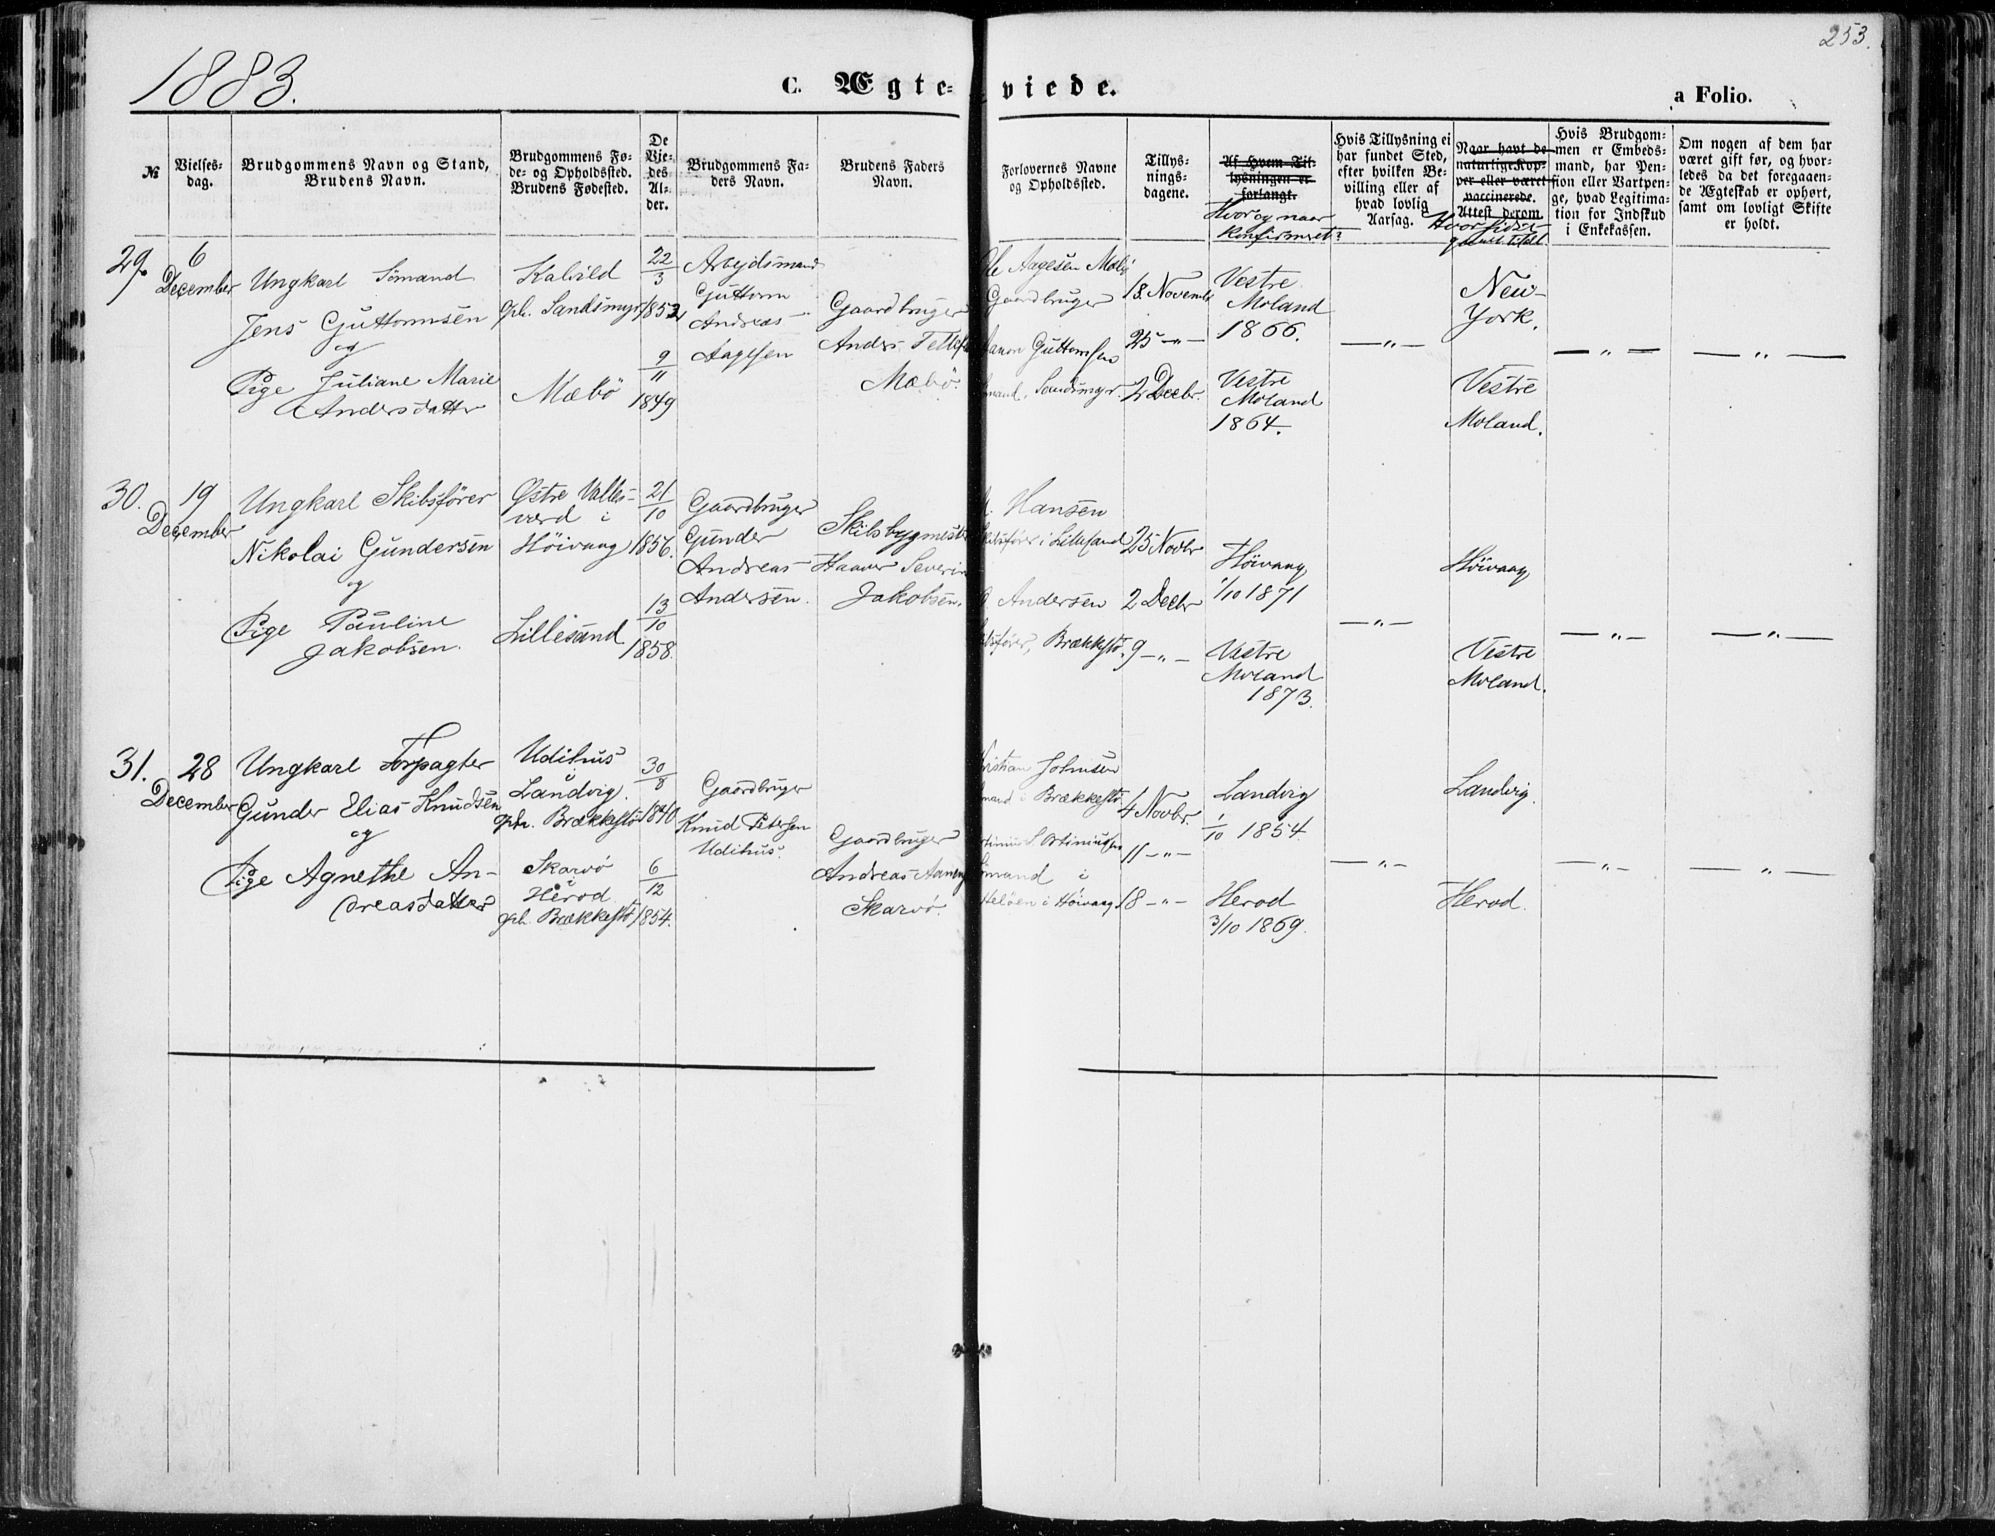 1883.
C. Ægte-
viede.
a Folio.
253.
№
Vielses-
dag.
Brudgommens Navn og Stand,
Brudens Navn.
Brudgommens Fø-
de- og Opholdssted.
Brudens Fødested.
De
Vie-
des
Al-
der.
Brudgommens Fa-
ders Navn.
Brudens Faders
Navn.
Forlovernes Navne
og Opholdssted.
Tillys-
nings-
dagene.
Af Hvem Til-
lysningen er
forlangt.
Hvor og naar
Konfirmeret?
Hvis Tillysning ei
har fundet Sted,
efter hvilken Be-
villing eller af
hvad lovlig
Aarsag.
Naar havt de
naturlige Kop-
per eller været
vaccinerede.
Attest derom
Hvis Brudgom-
men er Embeds-
mand, har Pen-
sion eller Vartpen-
ge, hvad Legitima-
tion for Indskud
i Enkekassen.
Om nogen af dem har
været gift før, og hvor-
ledes da det foregaaen-
de Ægteskab er ophørt,
samt om lovligt Skifte
er holdt.
29.
6
December
Ungkarl Sömand
Jens Guttormsen
og
Pige Juliane Marie
Andersdatter
Kalvild
Sandsmyr
Mæbö
22
3
1852
9
11
1849
Arbejdsmand
Guttorm
Andreas
Aagesen
Gaardbruger
Anders
Mæbö.
Aagesen Mæbö
Gaardbruger
Guttormsen
Sandsmyr.
18. Novemb
25 -„-
2 Decbr.
Vestre
Moland
1866.
Vestre
Moland
1864.
-„-
New-
York.
Vestre
Moland.
-„-
-„-
30.
19
December
Ungkarl Skibsfører
Nikolai Gundersen
og
Pige Pauline
Jakobsen.
Østre Valles-
værd i
Höivaag
Lillesand
21
10
1856.
13
10
1858.
Gaardbruger
Gunder
Andreas
Andersen.
Skibsbygmest
Haaver Severin
Jakobsen.
Hansen
i Lillesand
Andersen
Brækkestö.
25 Novbr
2 Decbr
9 -„-
Höivaag
1/10 1871
Vestre
Moland
1873.
-„-
Höivaag
Vestre
Moland.
-„-
-„-
31.
28
December
Ungkarl Forpagter
Gunder Elias Knudsen
og
Pige Agnethe An-
dreasdatter
Udihus
Landvig.
Brækkestö
Skarvö
Herod
Brækkestö
30
8
1840
6
12
1854.
Gaardbruger
Knud Petersen
Udihus.
Gaardbruger
Andreas
Skarvö.
Johnsen
i Brækkestö
i
i Höivaag
4 Novbr.
11 -„-
18 -„-
Landvig
1
10 1854.
Herod
3/10 1869.
-„-
Landvig.
Herod.
-„-
-„-